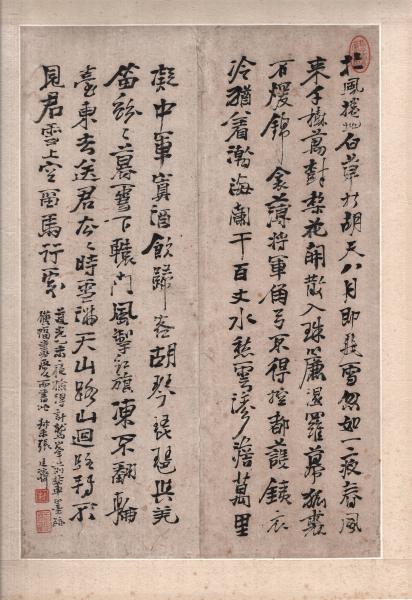 北風捲地白草折胡天八月即飛雪忽如一夜春風
來千樹萬樹梨花開散入珠簾濕羅幕狐裘
不煖錦衾薄將軍角弓不得控都護鐵衣
冷猶著瀚海闌干百丈冰愁雲慘澹萬里
凝中軍置酒飲歸客胡琴琵琶與羌
笛紛〻暮雪下轅門風掣紅旗凍不翻輪
臺東去送君去〻時雪滿天山路山迴路轉不
見君雪上空留馬行處
道光
而書此 叔未張廷濟